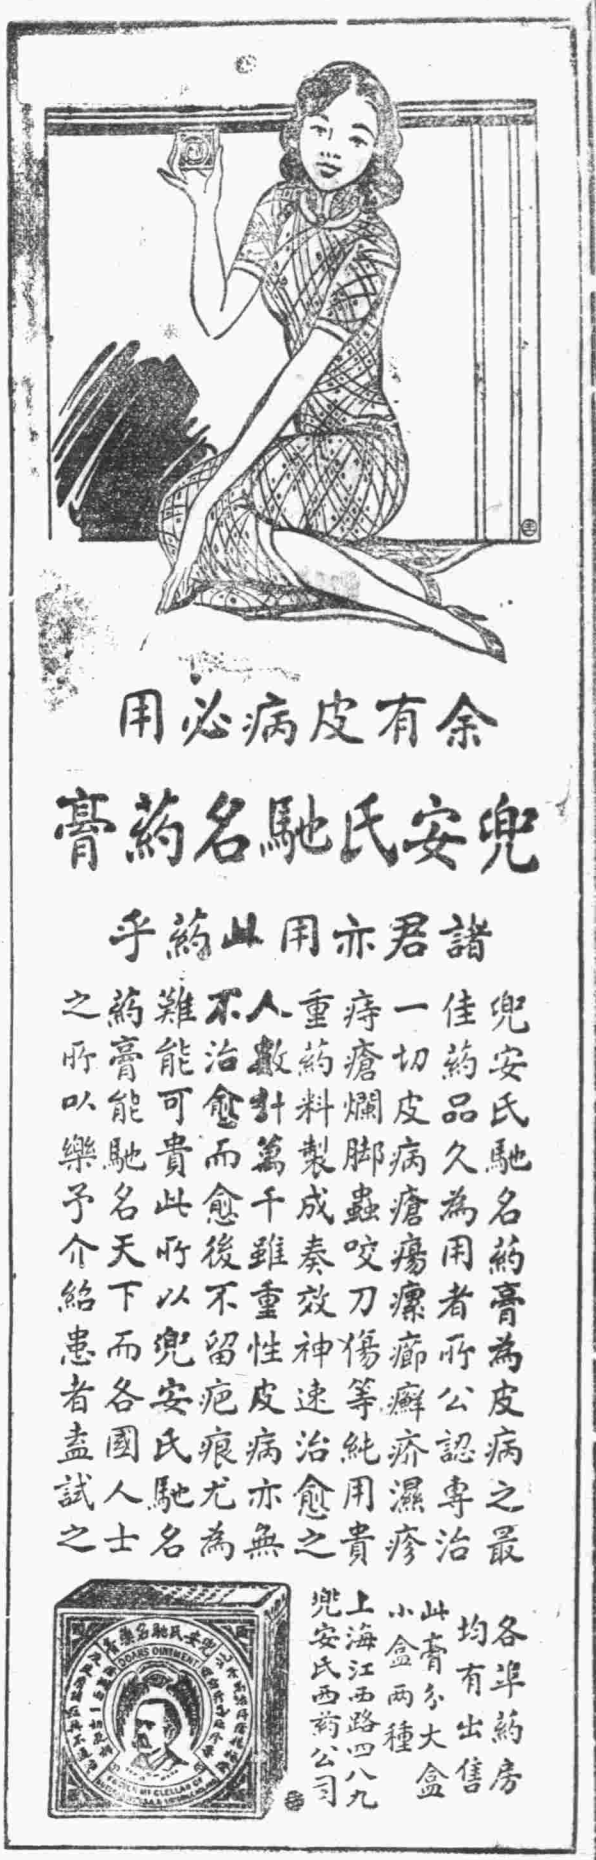 余有皮病必用
兜安氏馳名葯膏
諸君亦用此葯乎
兜安氏馳名葯膏為皮病之最
佳葯品久為用者所公認專治
一切皮病瘡瘍瘰癤癬疥濕疹
痔瘡爛脚蟲咬刀傷等純用貴
重葯料製成奏效神速治愈之
人數計萬千雖重性皮病亦無
不治愈而愈後不留疤痕尤為
難能可貴此所以兜安氏馳名
葯膏能馳名天下而各國人士
之所以樂予介紹患者盍試之
各埠葯房
均有出售
此膏分大盒
小盒两種
上海江西路四八九
兜安氏西葯公司
兜安氏馳名藥膏
DOANS OINTMENT
FOSTER MCCLELLAN CO